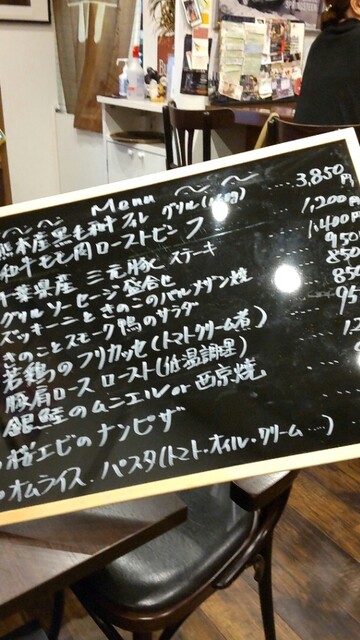 〜 〜 Menu 〜 〜
熊本産黒毛和牛フィレ グリル(150g) ‥‥3,850円
和牛もも肉ローストビーフ ‥‥1,200円
千葉県産 三元豚 ステーキ ‥‥1,400円
グリルソーセージ盛合せ ‥‥950
ズッキーニときのこのパルメザン焼 ‥‥850
きのことスモーク鴨のサラダ ‥‥85
若鶏のフリカッセ(トマトクリーム煮) ‥‥95
豚肩ロースロースト(低温調理) ‥‥12
銀鮭のムニエル or 西京焼
桜エビのナンピザ
・オムライス・パスタ(トマト・オイル・クリーム …)